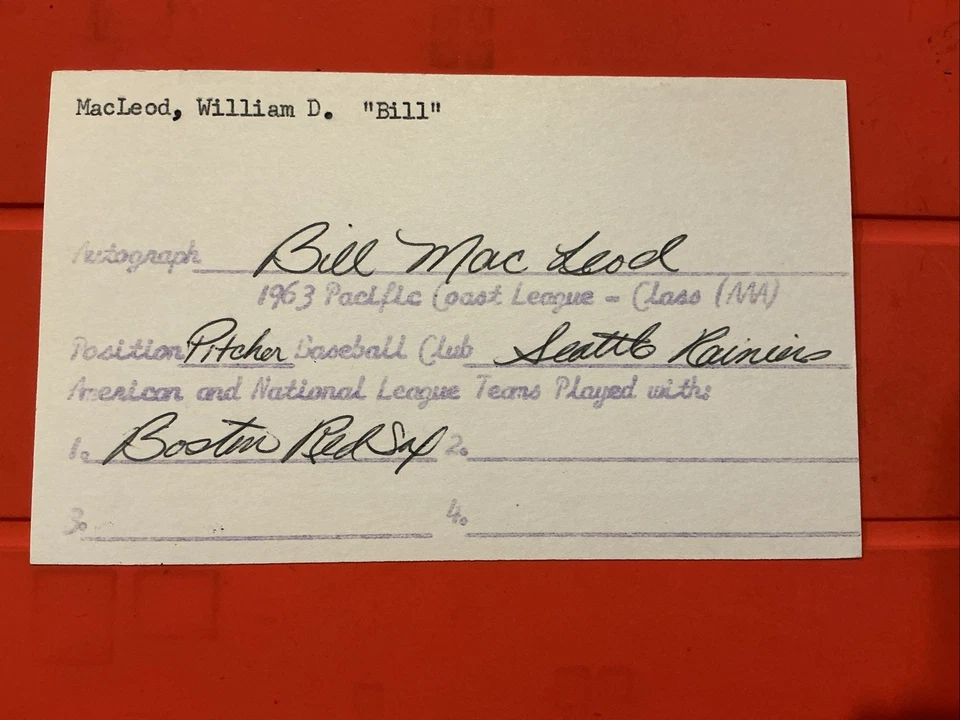 MacLeod, William D. "Bill"
Autograph Bill Mac Leod
1963 Pacific Coast League - Class (AAA)
Position Pitcher Baseball Club Seattle Rainiers
American and National League Teams Played with:
1. Boston Red Sox 2.
3. 4.